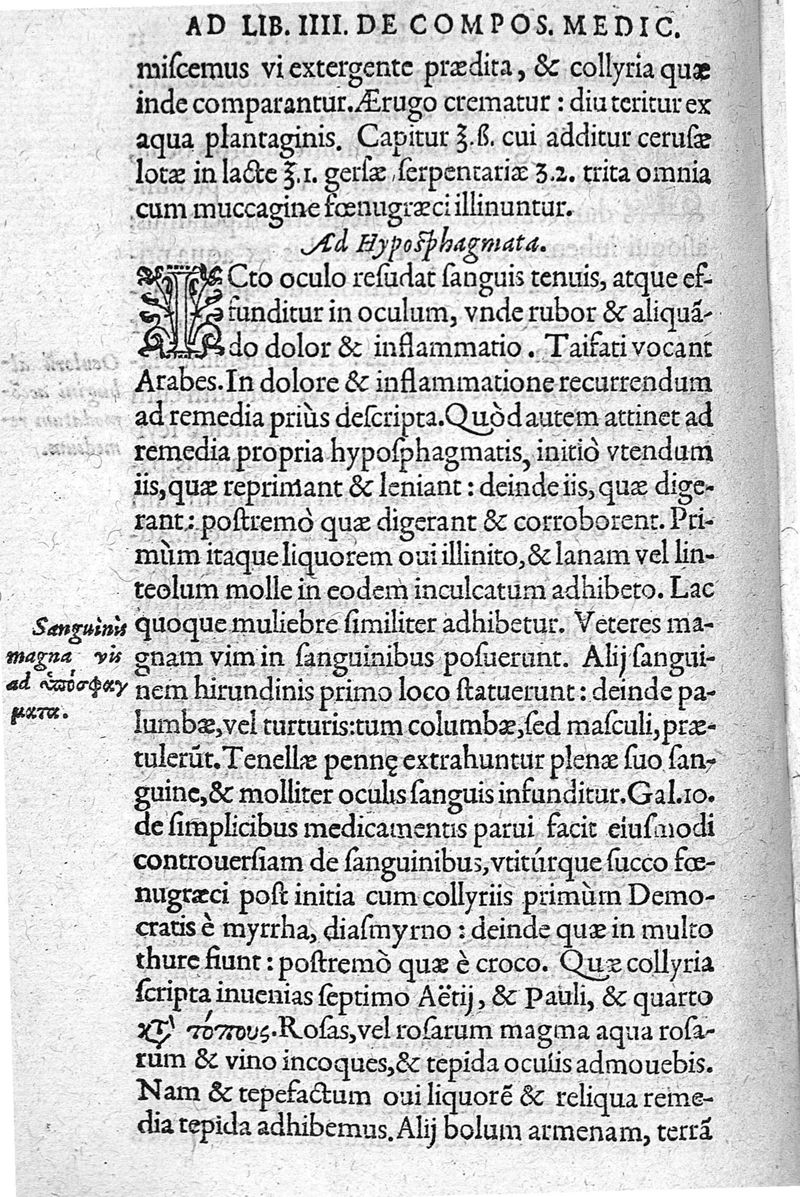 AD LIB. IIII. DE COMPOS. MEDIC.
miſcemus vi extergente prædita, & collyria quæ
inde comparantur. Ærugo crematur : diu teritur ex
aqua plantaginis. Capitur ℥.ß. cui additur ceruſæ
lotæ in lacte ℥.1. gerſæ ſerpentariæ ʒ.2. trita omnia
cum muccagine fœnugræci illinuntur.
Ad Hypoſphagmata.
ICto oculo reſudat ſanguis tenuis, atque ef-
funditur in oculum, vnde rubor & aliquā-
do dolor & inflammatio. Taifati vocant
Arabes. In dolore & inflammatione recurrendum
ad remedia priùs deſcripta. Quòd autem attinet ad
remedia propria hypoſphagmatis, initiò vtendum
iis, quæ reprimant & leniant : deinde iis, quæ dige-
rant : poſtremò quæ digerant & corroborent. Pri-
mùm itaque liquorem oui illinito, & lanam vel lin-
teolum molle in eodem inculcatum adhibeto. Lac
quoque muliebre ſimiliter adhibetur. Veteres ma-
gnam vim in ſanguinibus poſuerunt. Alij ſangui-
nem hirundinis primo loco ſtatuerunt : deinde pa-
lumbæ, vel turturis: tum columbæ, ſed maſculi, præ-
tulerūt. Tenellæ pennę extrahuntur plenæ ſuo ſan-
guine, & molliter oculis ſanguis infunditur. Gal.10.
de ſimplicibus medicamentis parui facit eiuſmodi
controuerſiam de ſanguinibus, vtitúrque ſucco fœ-
nugræci poſt initia cum collyriis primùm Demo-
cratis è myrrha, diaſmyrno : deinde quæ in multo
thure fiunt : poſtremò quæ è croco. Quæ collyria
ſcripta inuenias ſeptimo Aëtij, & Pauli, & quarto
κτ̀ τόπους. Roſas, vel roſarum magma aqua roſa-
rum & vino incoques, & tepida oculis admouebis.
Nam & tepefactum oui liquorē & reliqua reme-
dia tepida adhibemus. Alij bolum armenam, terrā
Sanguinis
magna vis
ad ὑπόσφαγ
ματα.